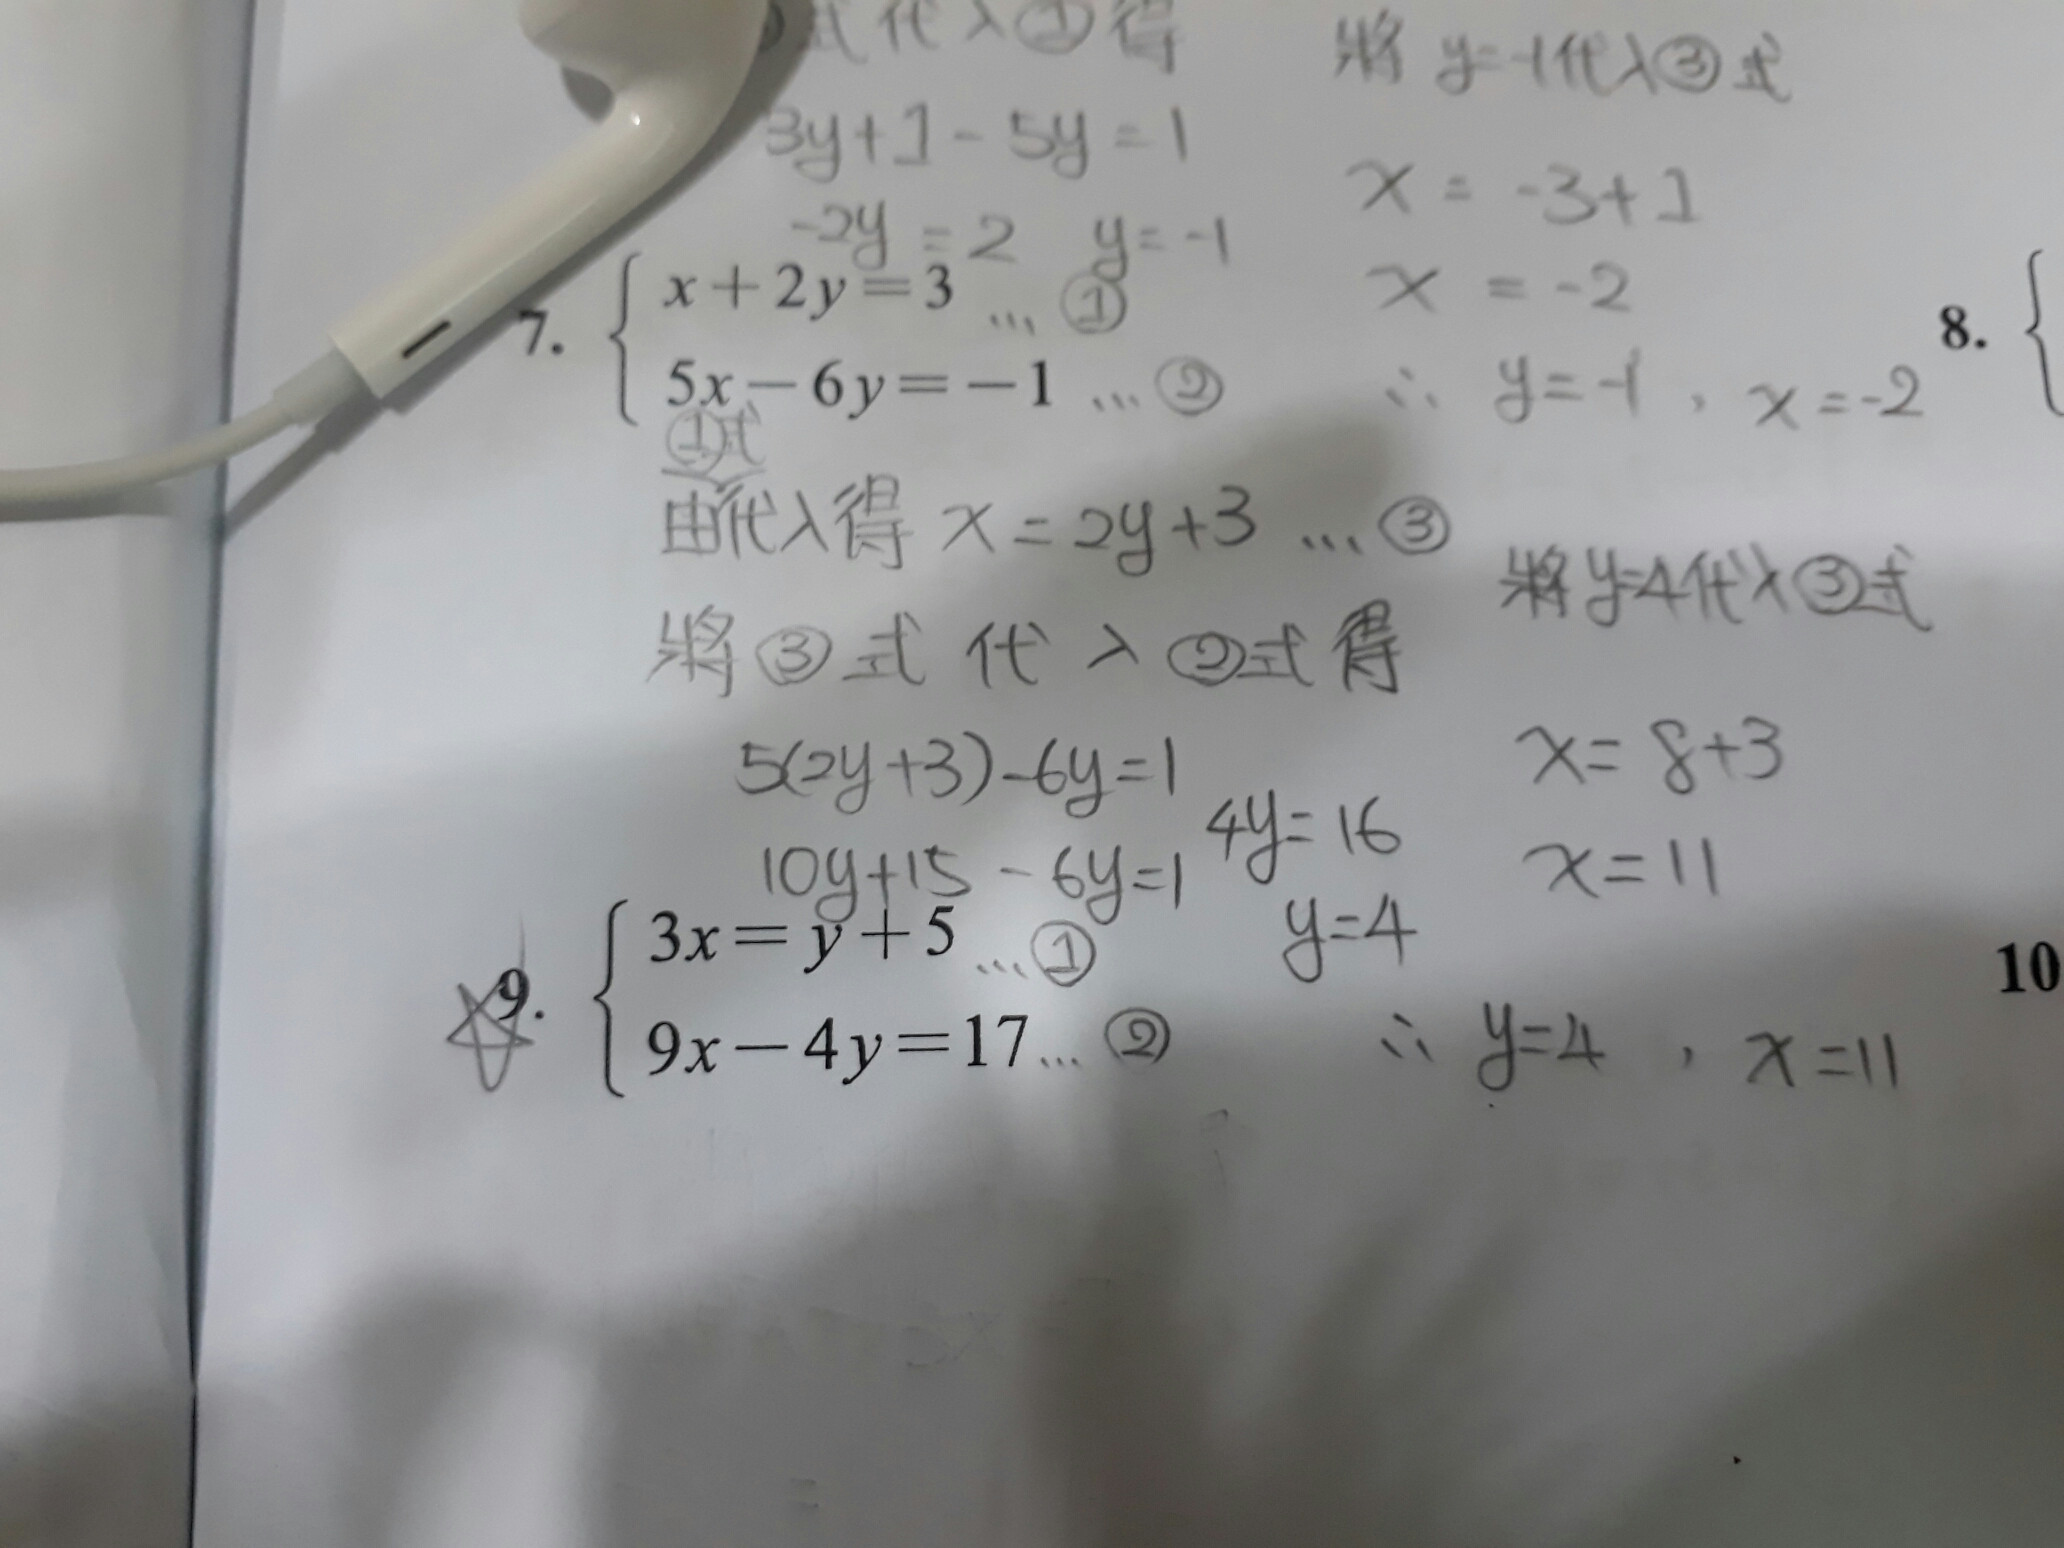 式代入①得
3y+1-5y=1
-2y=2 y=-1
將y=-1代入③式
x=-3+1
x=-2
∴y=-1，x=-2
7. x+2y=3 ...①
5x-6y=-1 ...②
①式
由代入得 x=2y+3 ...③
將③式代入②式得
5(2y+3)-6y=1
10y+15-6y=1
4y=16
y=4
將y=4代入③式
x=8+3
x=11
∴y=4，x=11
8.
9. 3x=y+5 ...①
9x-4y=17...②
10